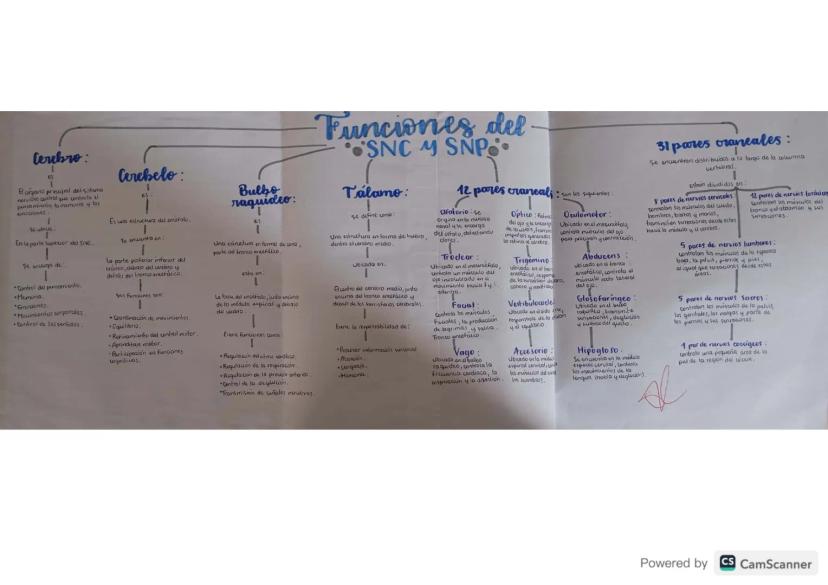 Funciones del
SNC y SNP
Cerebro:
es
El órgano principal del sistema
nervioso central que controla el
pensamiento, la memoria y las
emociones.
Se ubica
En la parte superior del SNC.
Se encarga de:
•Control del pensamiento.
•Memoria.
•Emociones.
•Movimientos corporales.
•Control de los sentidos.
Cerebelo:
es
Es una estructura del encéfalo.
Se encuentra en:
La parte posterior inferior del
cráneo, debajo del cerebro y
detrás del tronco encefálico.
Sus funciones son:
•Coordinación de movimientos.
•Equilibrio.
•Aprendizaje motor.
•Participación en funciones
cognitivas.
Bulbo
raquídeo:
es:
Una estructura en forma de cono,
parte del tronco encefálico.
esta en:
La base del encéfalo, justo encima
de la médula espinal y debajo
del cerebro.
tiene funciones como:
•Regulación del ritmo cardíaco.
•Regulación de la respiración.
•Regulación de la presión arterial.
•Control de la deglución.
•Transmisión de señales nerviosas.
Tálamo:
se define como:
Una estructura en forma de huevo,
dentro del cerebro medio.
ubicado en:
El centro del cerebro medio, justo
encima del tronco encefálico y
debajo de los hemisferios cerebrales.
tiene la responsabilidad de:
•Procesar información sensorial
•Atención.
•Lenguaje.
•Memoria.
12 pares craneales: son los siguientes:
Olfatorio: Se
origina en la mucosa
nasal y se encarga
del olfato, detectando
olores.
Óptico:
Oculomotor:
Ubicado en el mesencéfalo,
Troclear:
Ubicado en el mesencéfalo,
controla un músculo del
ojo
Trigémino
Abducens:
Ubicado en el tronco
encefálico, controla el
músculo recto lateral
del ojo.
Facial:
Controla los músculos
faciales, la producción
de lagrimas y saliva.
Tronco encefálico.
Glosofaríngeo:
Ubicado en el bulbo
Vago:
Ubicado en el bulbo
raquídeo, controla la
frecuencia cardíaca, la
respiración y la digestión.
Accesorio:
Ubicado en la médula
los músculos del cuello
los hombros.
Hipogloso:
Se encuentra en la médula
espinal cervical, controla
los movimientos de la
lengua (habla y deglución).
31 pares craneales:
Se encuentran distribuidos a lo largo de la columna
vertebral.
están divididos en:
8 pares de nervios cervicales:
controlan los músculos del cuello,
hombros, brazos y manos,
transmiten sensaciones desde estas
12 pares de nervios torácicos
controlan los músculos del
tronco y el abdomen y sus
sensaciones.
5 pares de nervios lumbares:
controlan los músculos de la espalda
baja, la pelvis, piernas y pies,
al igual que sensaciones desde estas
áreas.
5 pares de nervios sacros:
controlan los músculos de la pelvis,
los genitales, las nalgas y parte de
las piernas y las sensaciones.
1 par de nervios coccígeos:
controla una pequeña área de la
piel de la región del cóccix.
Powered by CS CamScanner